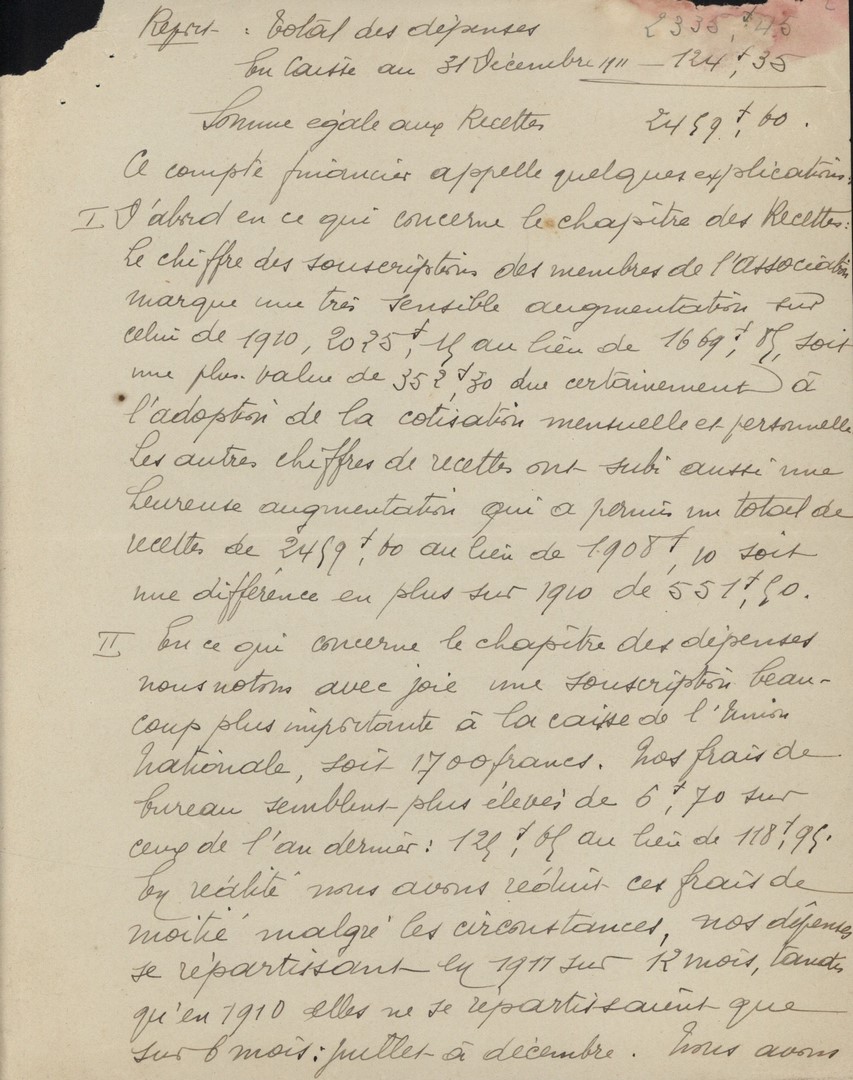 Report : Total des dépenses 2335f,25
En Caisse au 31 Décembre 1911 — 124f,35
Somme égale aux Recettes 2459f,60.
Ce compte financier appelle quelques explications:
I D'abord en ce qui concerne le chapître des Recettes:
Le chiffre des souscriptions des membres de l'Association
marque une très sensible augmentation sur
celui de 1910, 2025f,15 au lieu de 1669f,85, soit
une plus-value de 352f,30 due certainement à
l'adoption de la cotisation mensuelle et personnelle
Les autres chiffres de recettes ont subi aussi une
heureuse augmentation qui a permis un total de
recettes de 2459f,60 au lieu de 1908f,10 soit
une différence en plus sur 1910 de 551f,50.
II En ce qui concerne le chapître des dépenses
nous notons avec joie une souscription beau-
coup plus importante à la caisse de l'Union
Nationale, soit 1700 francs. Nos frais de
bureau semblent plus élevés de 6f,70 sur
ceux de l'an dernier: 125f,65 au lieu de 118f,95.
En réalité nous avons réduit ces frais de
moitié malgré les circonstances, nos dépenses
se répartissant en 1911 sur 12 mois, tandis
qu'en 1910 elles ne se répartissaient que
sur 6 mois: juillet à décembre. Nous avons